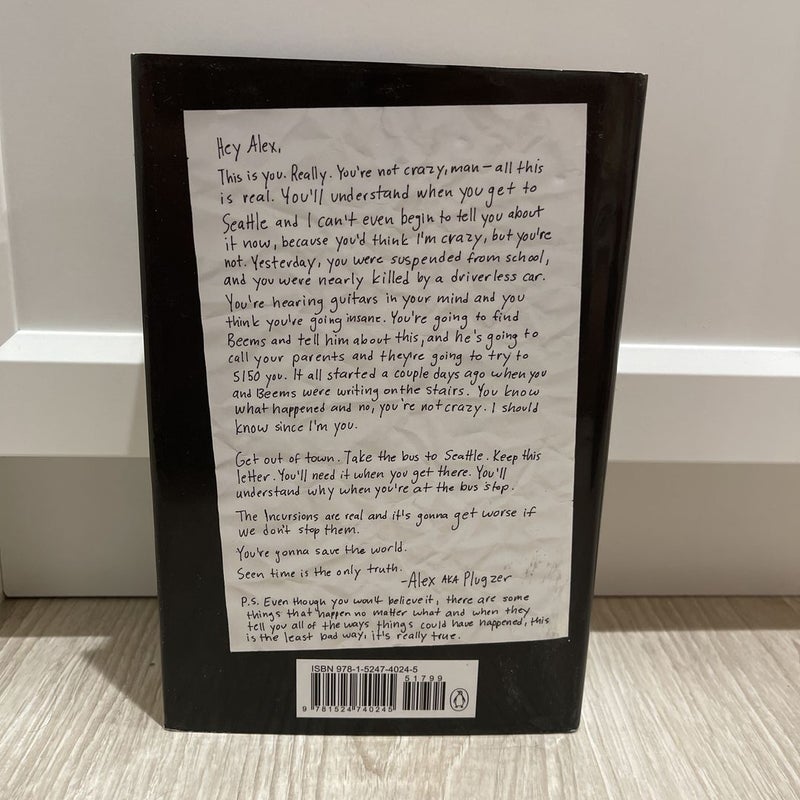 Hey Alex,
This is you. Really. You're not crazy, man – all this
is real. You'll understand when you get to
Seattle and I can't even begin to tell you about
it now, because you'd think I'm crazy, but you're
not. Yesterday, you were suspended from school,
and you were nearly killed by a driverless car.
You're hearing guitars in your mind and you
think you're going insane. You're going to find
Beems and tell him about this, and he's going to
call your parents and they're going to try to
5150 you. It all started a couple days ago when you
and Beems were writing on the stairs. You know
what happened and no, you're not crazy. I should
know since I'm you.
Get out of town. Take the bus to Seattle. Keep this
letter. You'll need it when you get there. You'll
understand why when you're at the bus stop.
The Incursions are real and it's gonna get worse if
we don't stop them.
You're gonna save the world.
Seen time is the only truth.
-Alex AKA Plugzer
P.S. Even though you won't believe it, there are some
things that happen no matter what and when they
tell you all of the ways things could have happened, this
is the least bad way, it's really true.
ISBN 978-1-5247-4024-5
51799
9 781524 740245